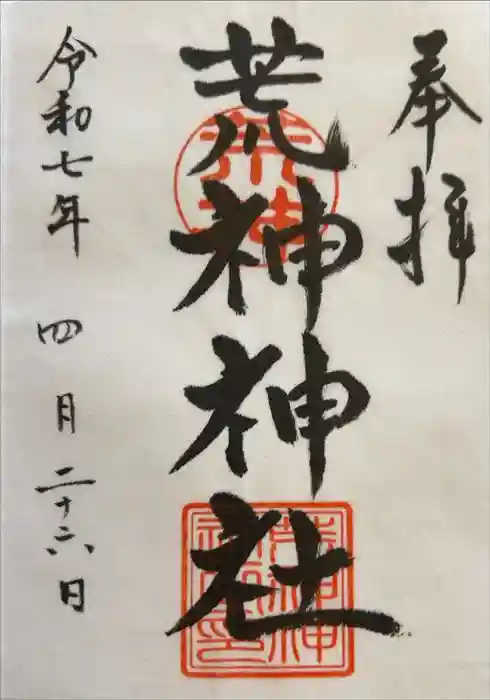 奉拝
荒神神社
荒神
令和七年 四月二十六日